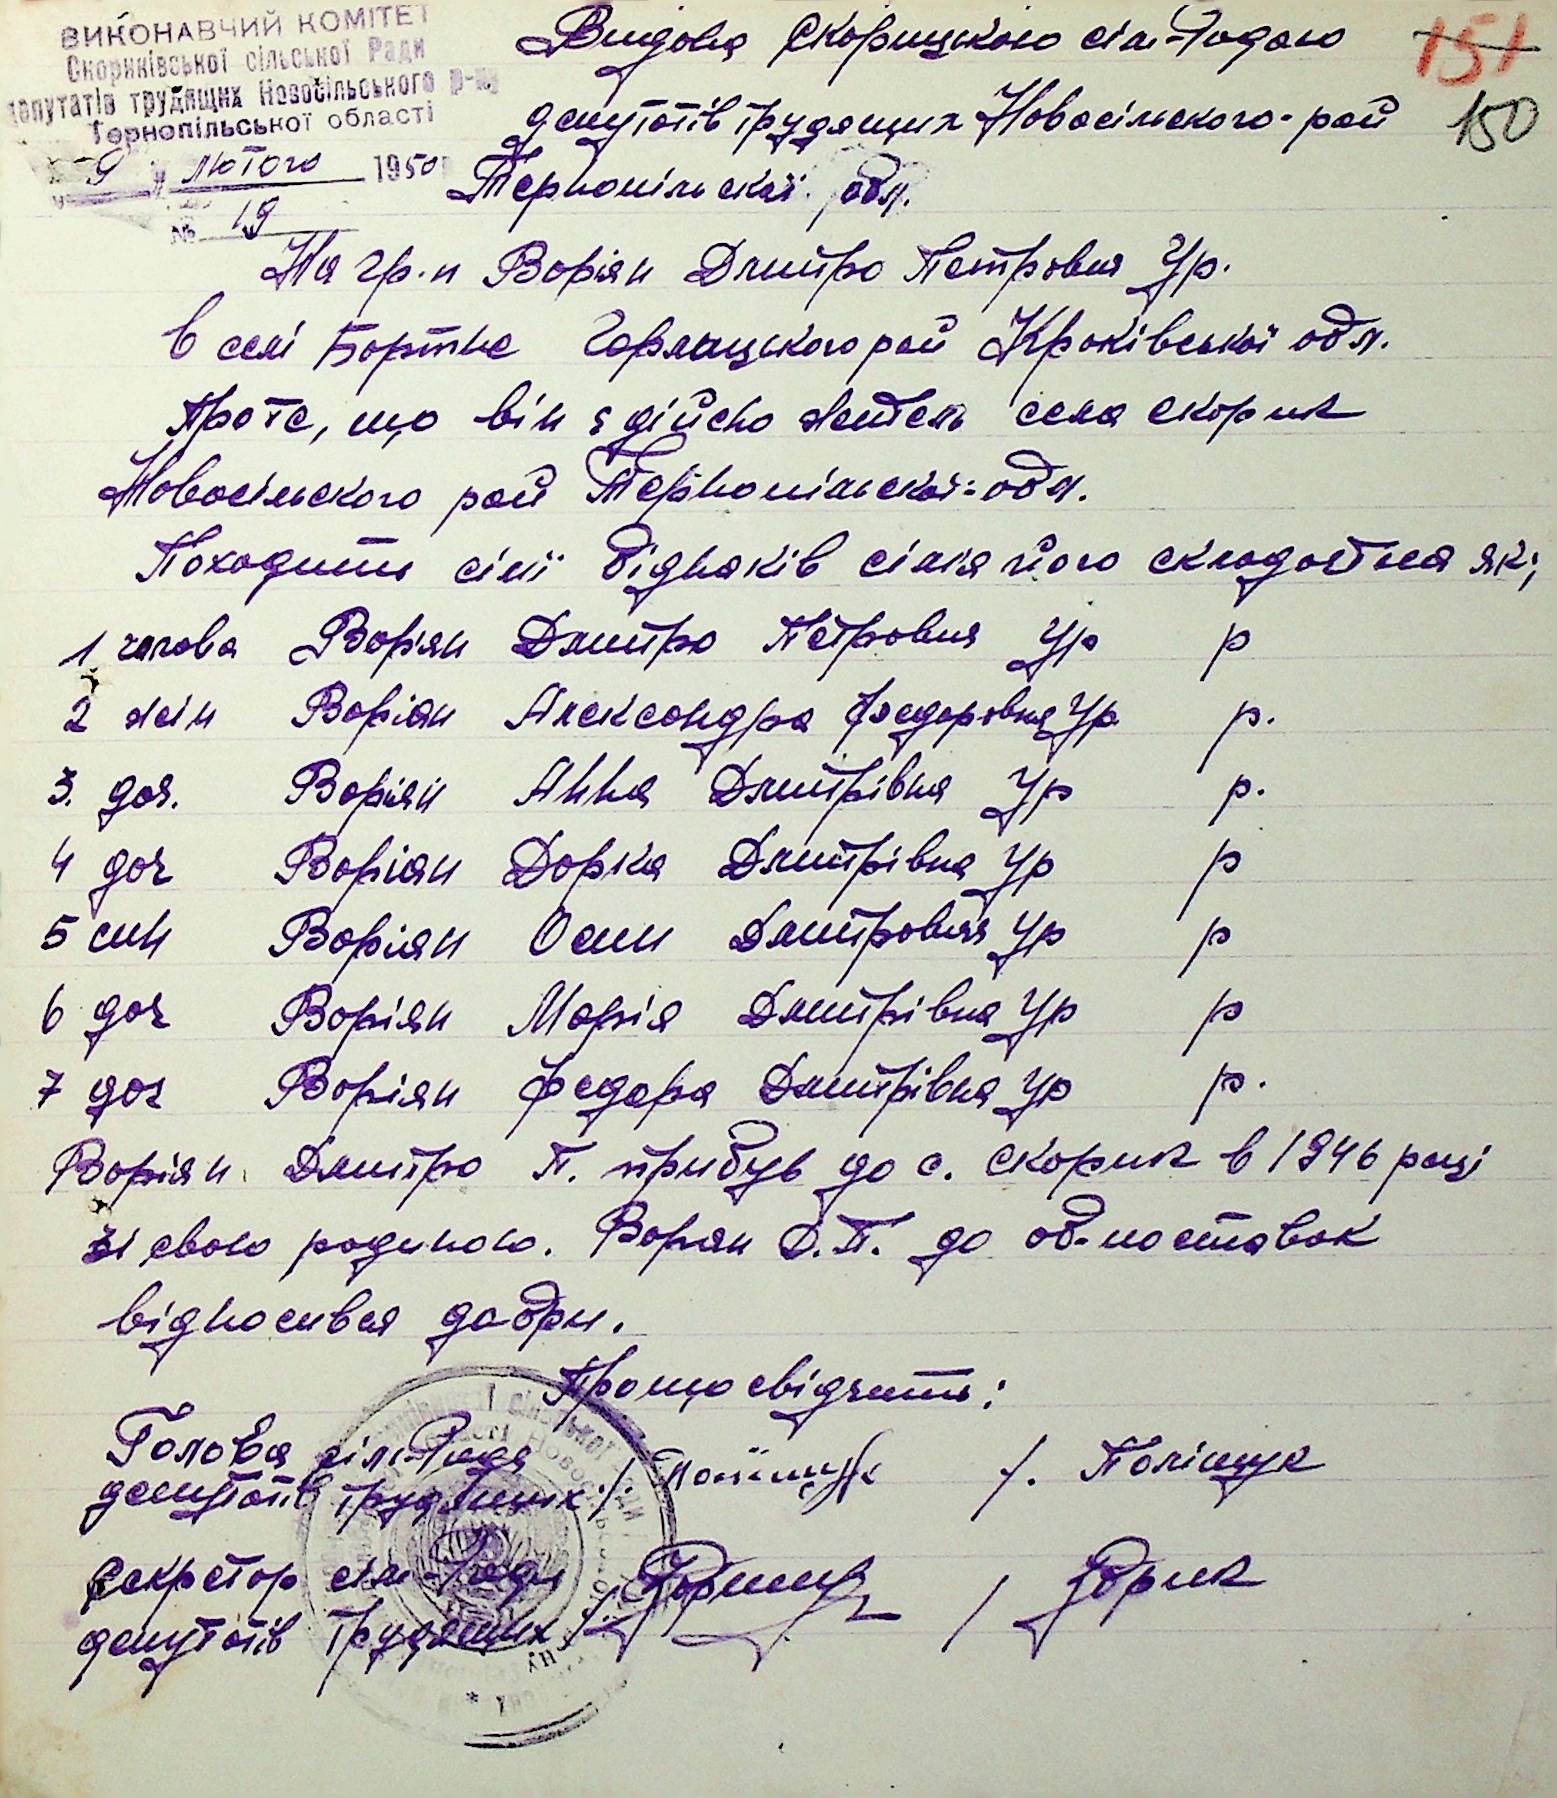 ВИКОНАВЧИЙ КОМІТЕТ
Скориківської сільської Ради
депутатів трудящих Новосільського р-ну
Тернопільської області
"9" лютого 1950
№ 19
151
150
Видова Скорицкого сіл-Радою
депутотів трудящих Новосільского-рой
Тернопільскої обл.
На гр.н Воріян Дмитро Петровия Ур.
в селі Бортне Горлицького рой Кроківської обл.
Проте, що він є дійсно жетель села Скорик
Новосільского рой Тернопільскої-обл.
Походить сімї бідноків сімія його склодоться як;
1 голова Ворян Дмитро Петровия Ур р
2 жін Воріян Александра Федоровна Ур р.
3. доч. Воріян Анна Дмитрівна Ур р.
4 доч Воріян Дорка Дмитрівна Ур р
5 син Воріян Осип Дмитровия Ур р
6 доч Воріян Морія Дмитрівна Ур р
7 доч Воріян Федора Дмитрівна Ур р.
Воріян Дмитро П. прибув до с. Скорик в 1946 році
зі свою родиною. Ворян Д.П. до об-поставок
відносився добри.
Прощо свідчить:
Голова сіл-Ради
депутотів трудящих /. Поліщук /. Поліщук
Секретор сіл-Ради
депутотів трудящих / /